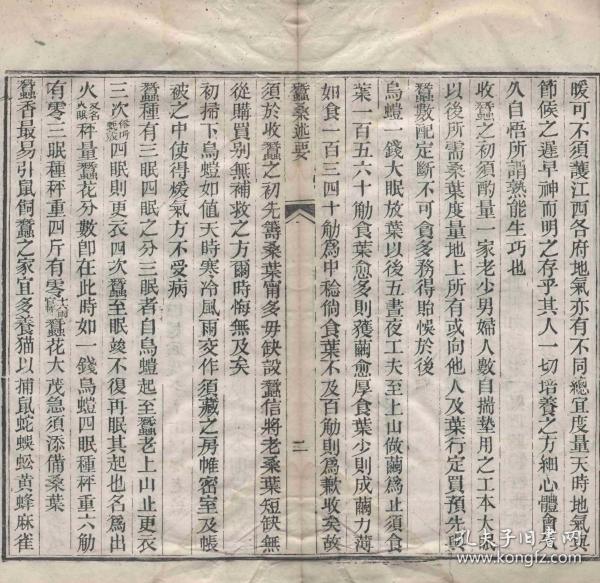 暖可不須護江西各府地氣亦有不同總宜度量天時地氣與
節候之遲早神而明之存乎其人一切培養之方細心體會
久自悟所謂熟能生巧也
收蠶之初須酌量一家老少男婦人數自揣墊用之工本大
以後所需桑葉度量地上所有或向他人及葉行定買預先與
蠶數配定斷不可貪多務得貽悞於後
烏螘一錢大眠放葉以後五晝夜工夫至上山做繭爲止須食
葉一百五六十觔食葉愈多則獲繭愈厚食葉少則成繭力薄
如食一百三四十觔爲中稔倘食葉不及百觔則爲歉收矣故
蠶桑述要
二
須於收蠶之初先籌桑葉甯多毋缺設蠶信將老桑葉短缺無
從購買別無補救之方爾時悔無及矣
初掃下烏螘如値天時寒冷風雨交作須藏之房帷密室及帳
被之中使得煖氣方不受病
蠶種有三眠四眠之分三眠者自烏螘起至蠶老上山止更衣
三次四眠則更衣四次蠶至眠竣不復再眠其起也名爲出
火又名大眠秤量蠶花分數卽在此時如一錢烏螘四眠種秤重六觔
有零三眠種秤重四斤有零蠶花大茂急須添備桑葉
蠶香最易引鼠飼蠶之家宜多養猫以捕鼠蛇蜈蚣黄蜂麻雀
孔夫子旧书网